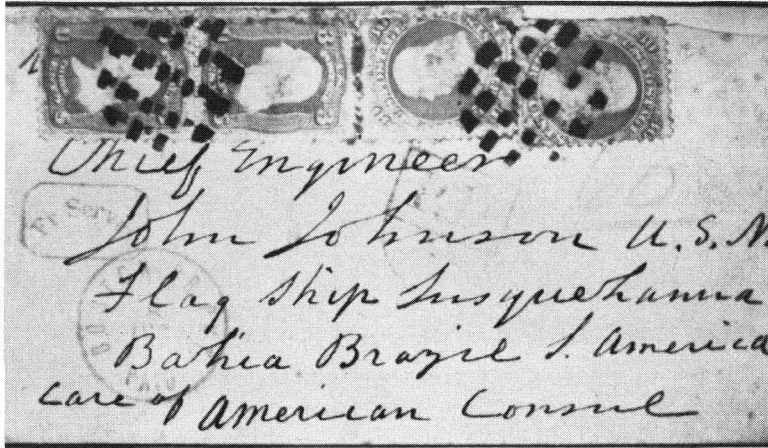 Chief Engineer
John Johnson U.S.N.
Flag Ship Susquehanna
Bahia Brazil S. America
Care of American Consul